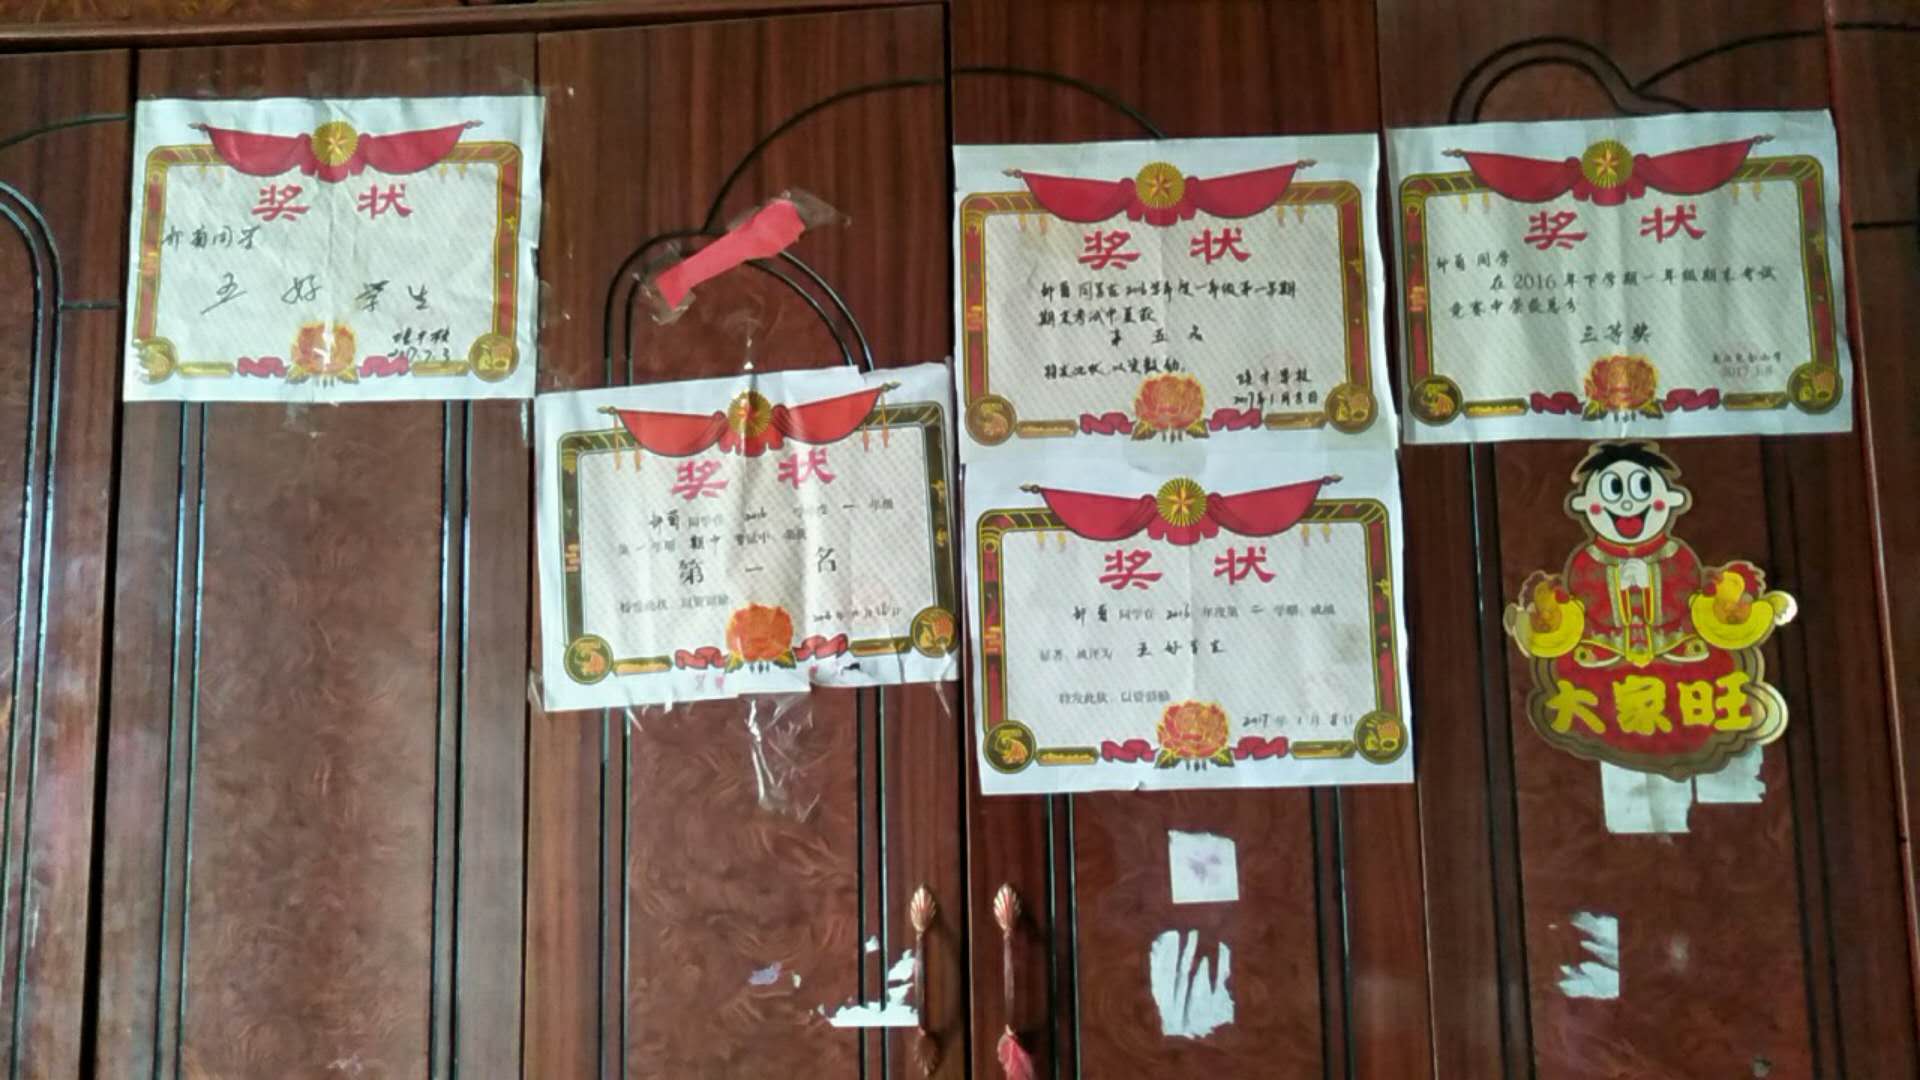 奖 状
同学
五 好 学生
2017.7.3
奖 状
同学在 2016 学年度 一 年级
第一学期 期中 考试中，荣获
第 一 名
特发此状，以资鼓励。
奖 状
同学在2016学年度一年级第一学期
期末考试中荣获
第 五 名
特发此状，以资鼓励。
2017年1月8日
奖 状
同学在 2016 年度第 二 学期，成绩
显著，被评为 五好学生
特发此状，以资鼓励
2017年1月8日
奖 状
同学
在2016年下学期一年级期末考试
竞赛中荣获总分
三等奖
2017.1.8
大家旺